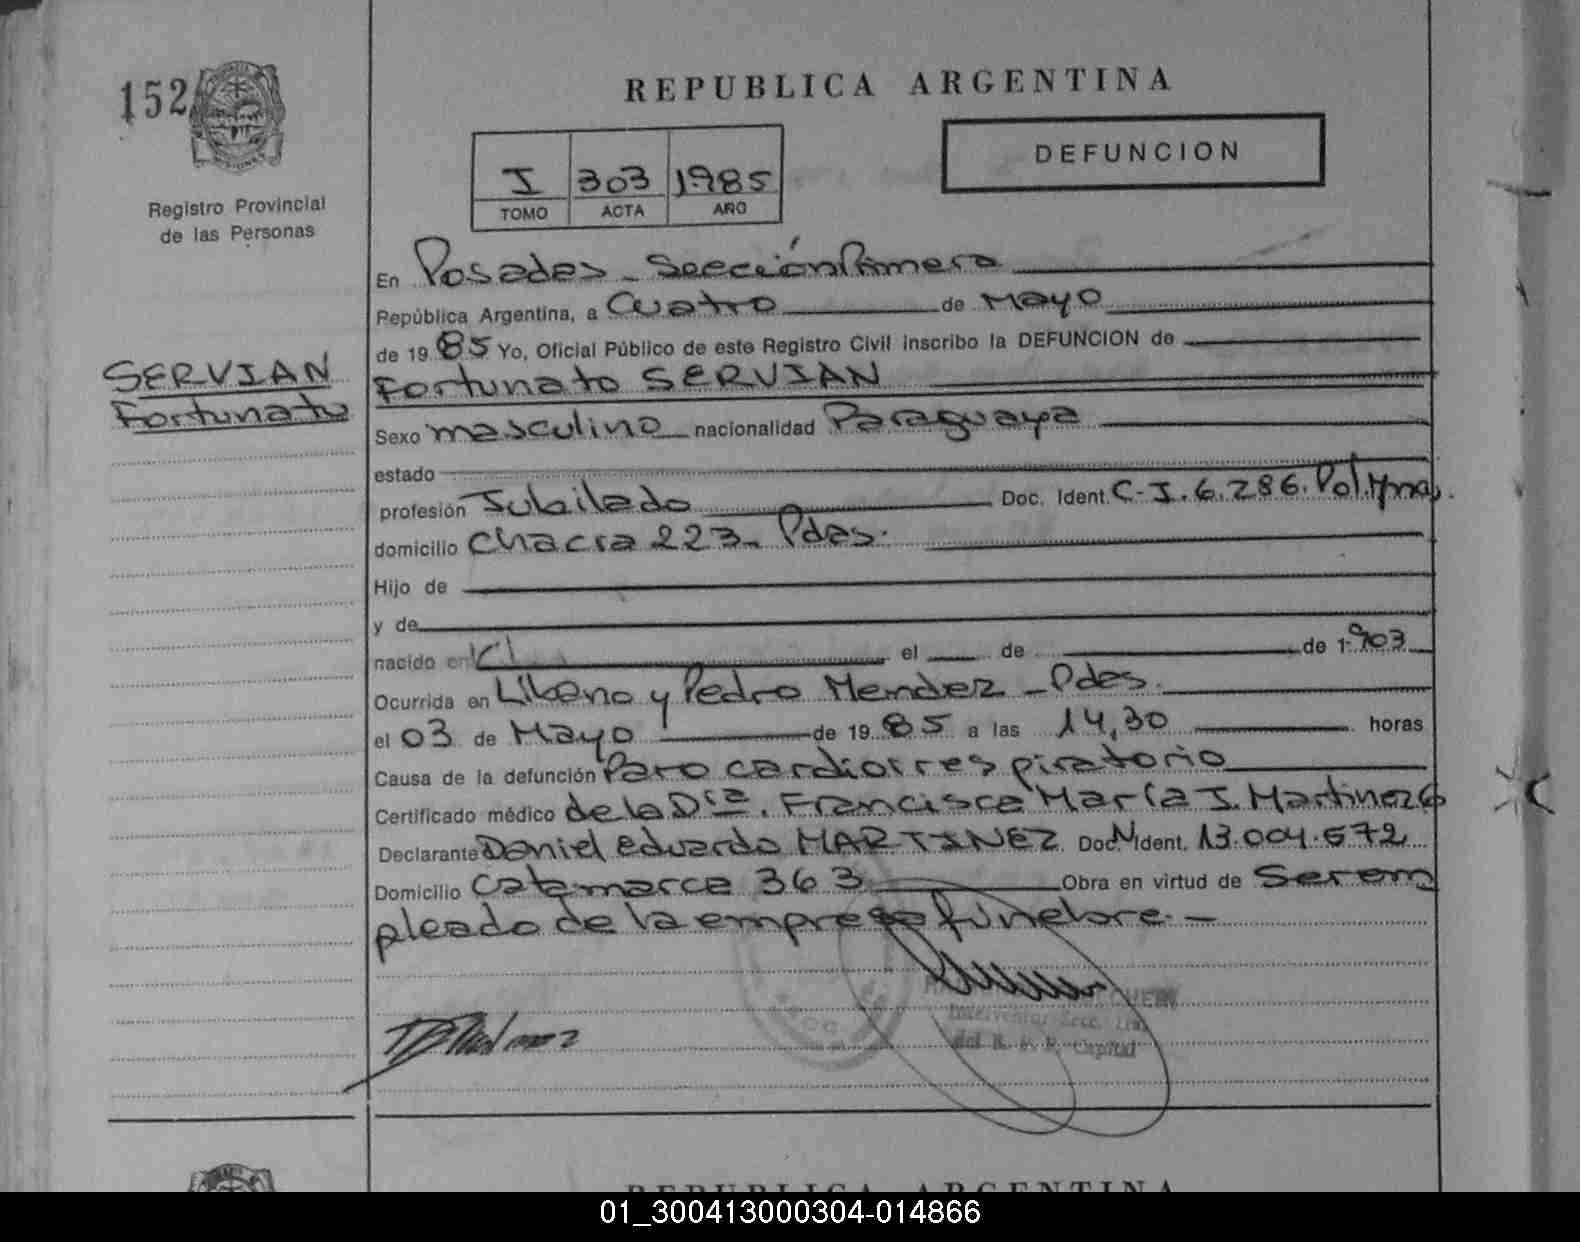 152
REPUBLICA ARGENTINA
DEFUNCION
I 303 1985
TOMO ACTA AÑO
Registro Provincial
de las Personas
SERVIAN
Fortunato
En Posadas - Sección Primera
República Argentina, a Cuatro de Mayo
de 1985 Yo, Oficial Público de este Registro Civil inscribo la DEFUNCION de
Fortunato SERVIAN
Sexo masculino nacionalidad Paraguaya
estado
profesión Jubilado Doc. Ident. C.I. 6.286. Pol. Mnes.
domicilio Chacra 223 - Pdas.
Hijo de
y de
nacido en el de de 1903
Ocurrida en Líbano y Pedro Mendez - Pdas.
el 03 de Mayo de 1985 a las 14,30 horas
Causa de la defunción Paro cardiorrespiratorio
Certificado médico de la Dra. Francisca María I. Martinez G
Declarante Daniel Eduardo MARTINEZ Doc. Ident. 13.004.672
Domicilio Catamarca 363 Obra en virtud de Ser em
pleado de la empresa fúnebre. -
Interventor Secc. 1ra.
del R. P. P. Capital
REPUBLICA ARGENTINA
01_300413000304-014866